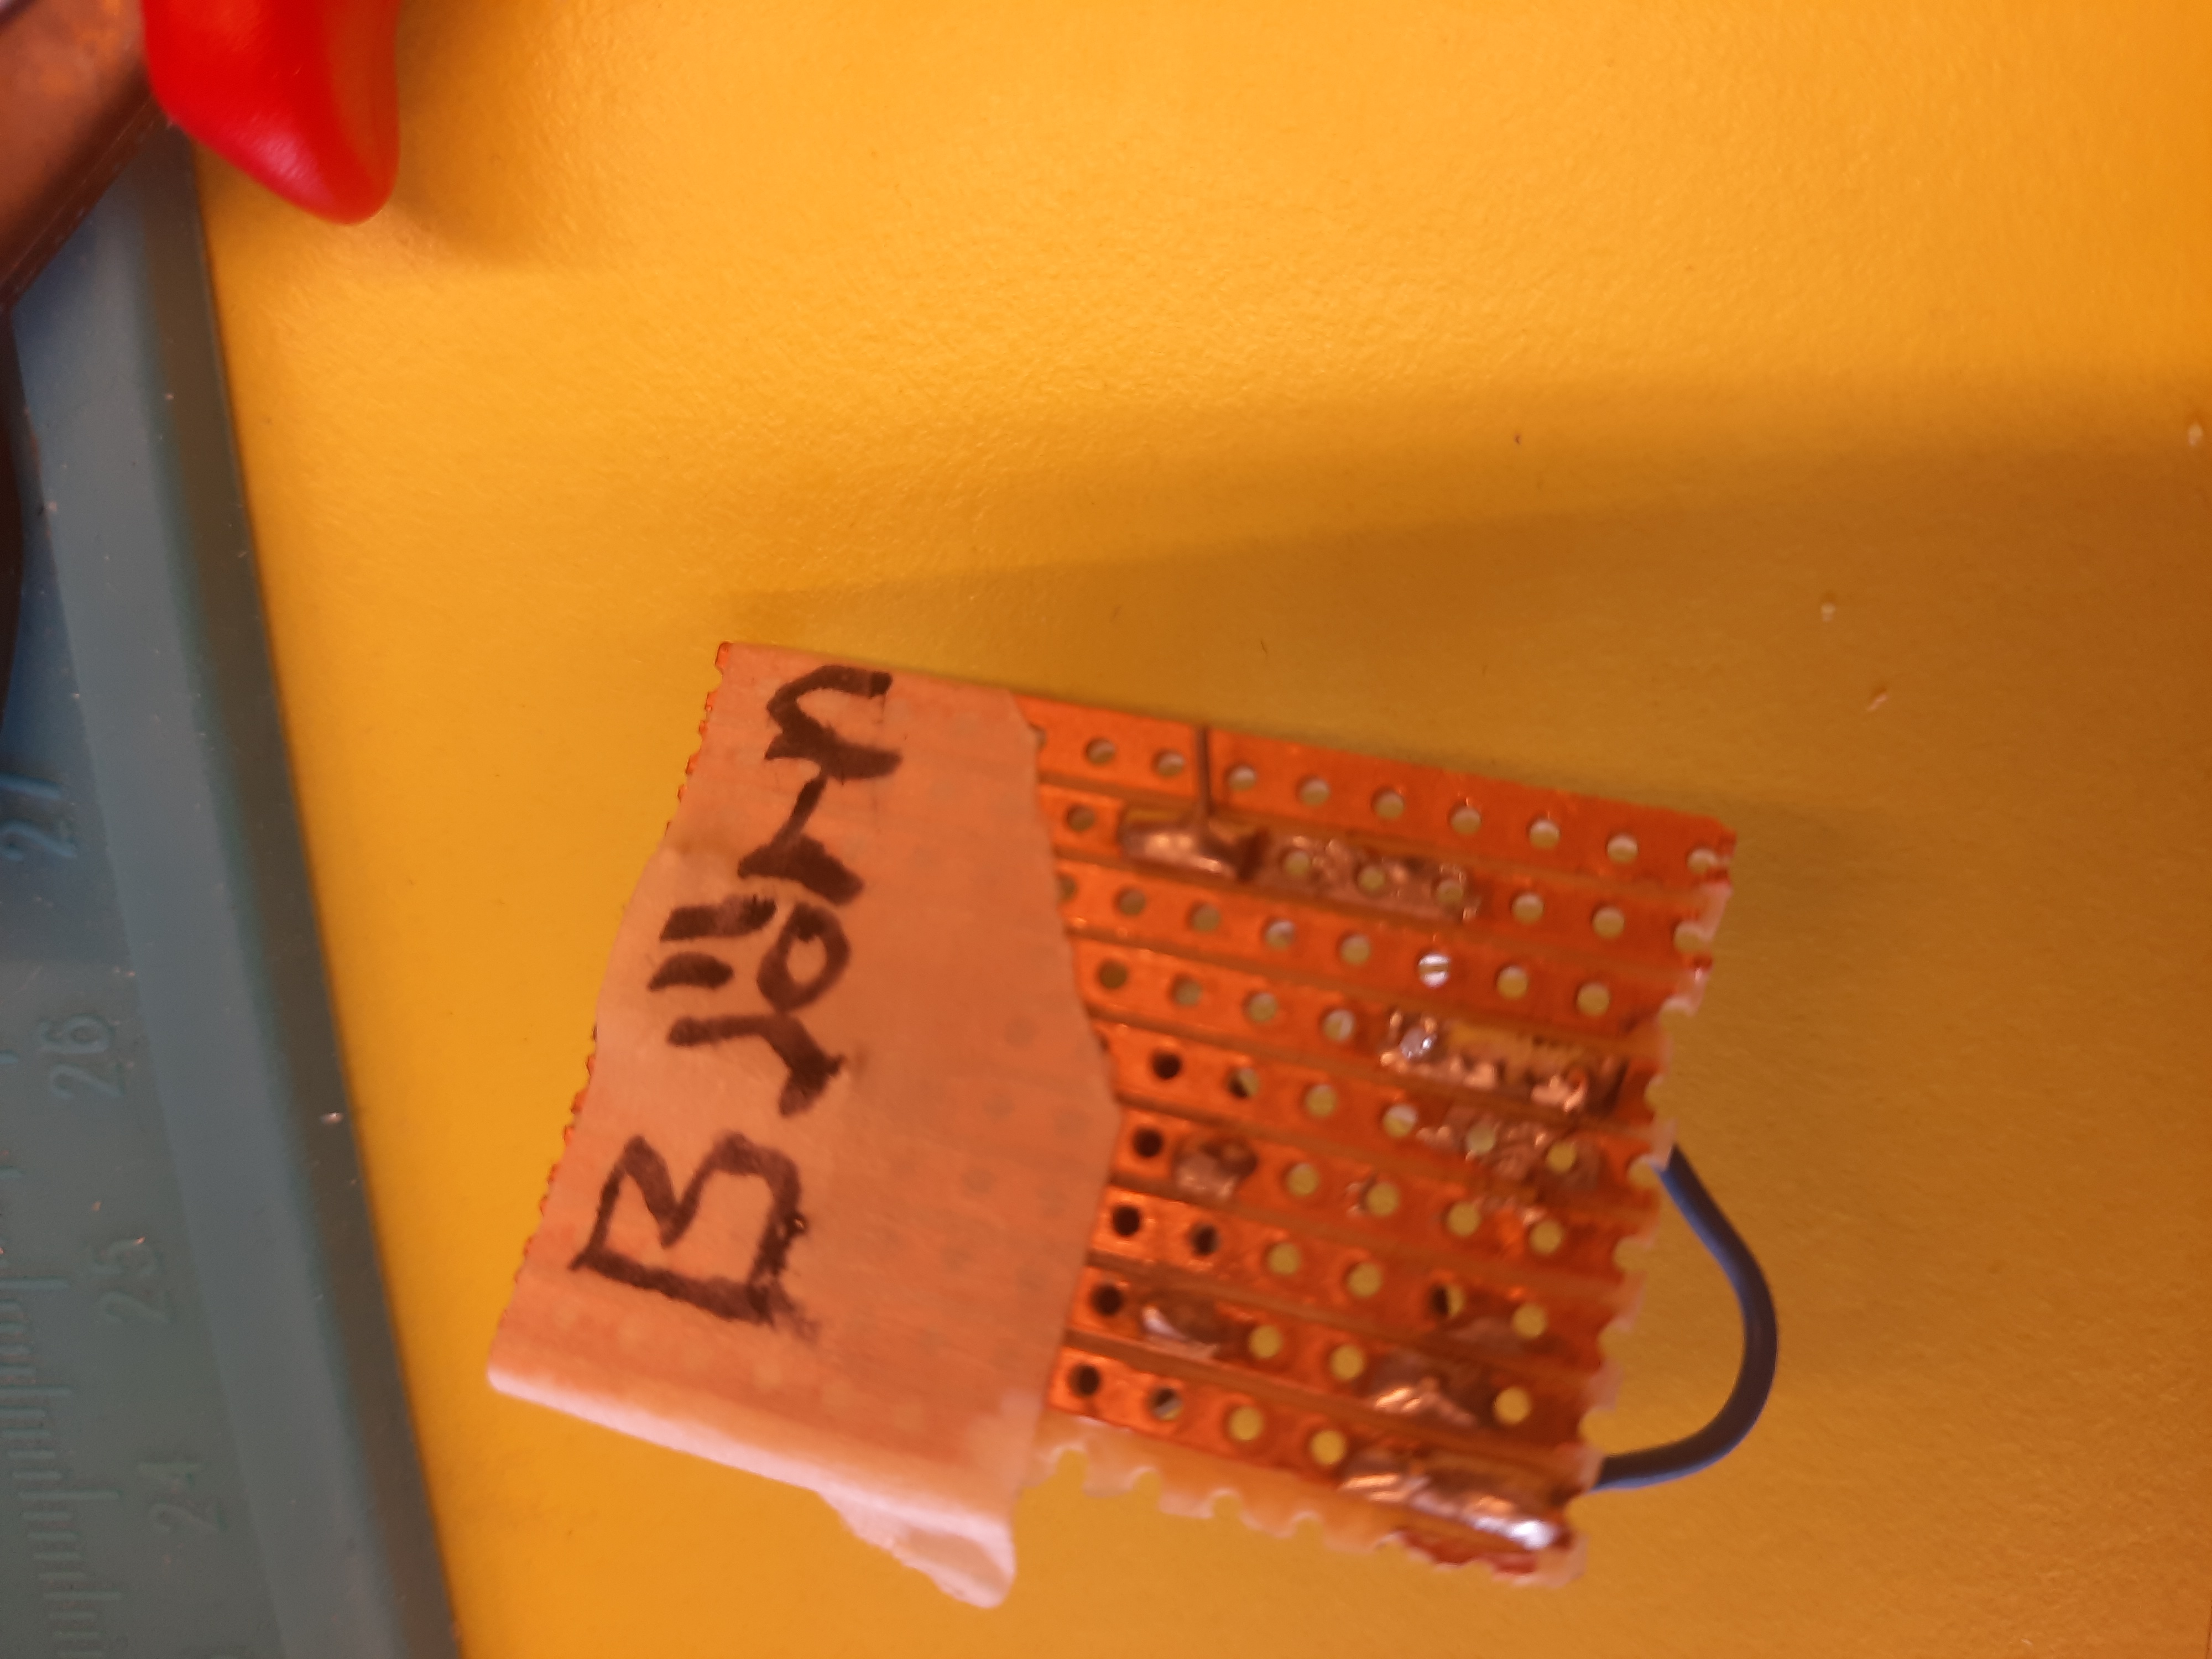 24 25 26 27
Björn